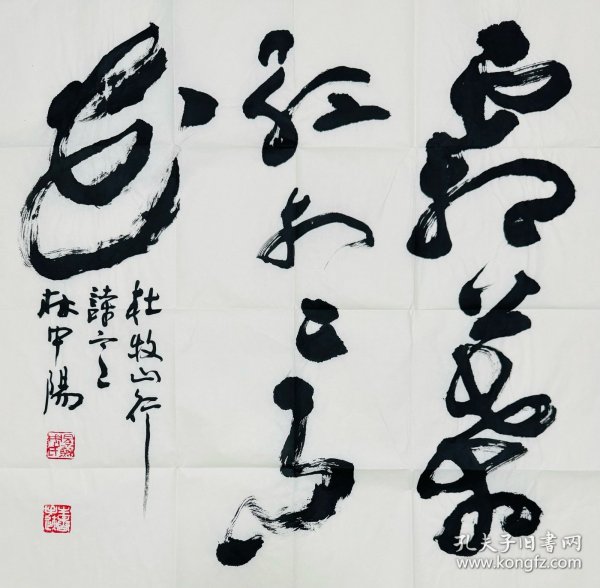 霜葉
紅於二月
花
杜牧山行
林中陽
孔夫子旧书网
www.kongfz.com